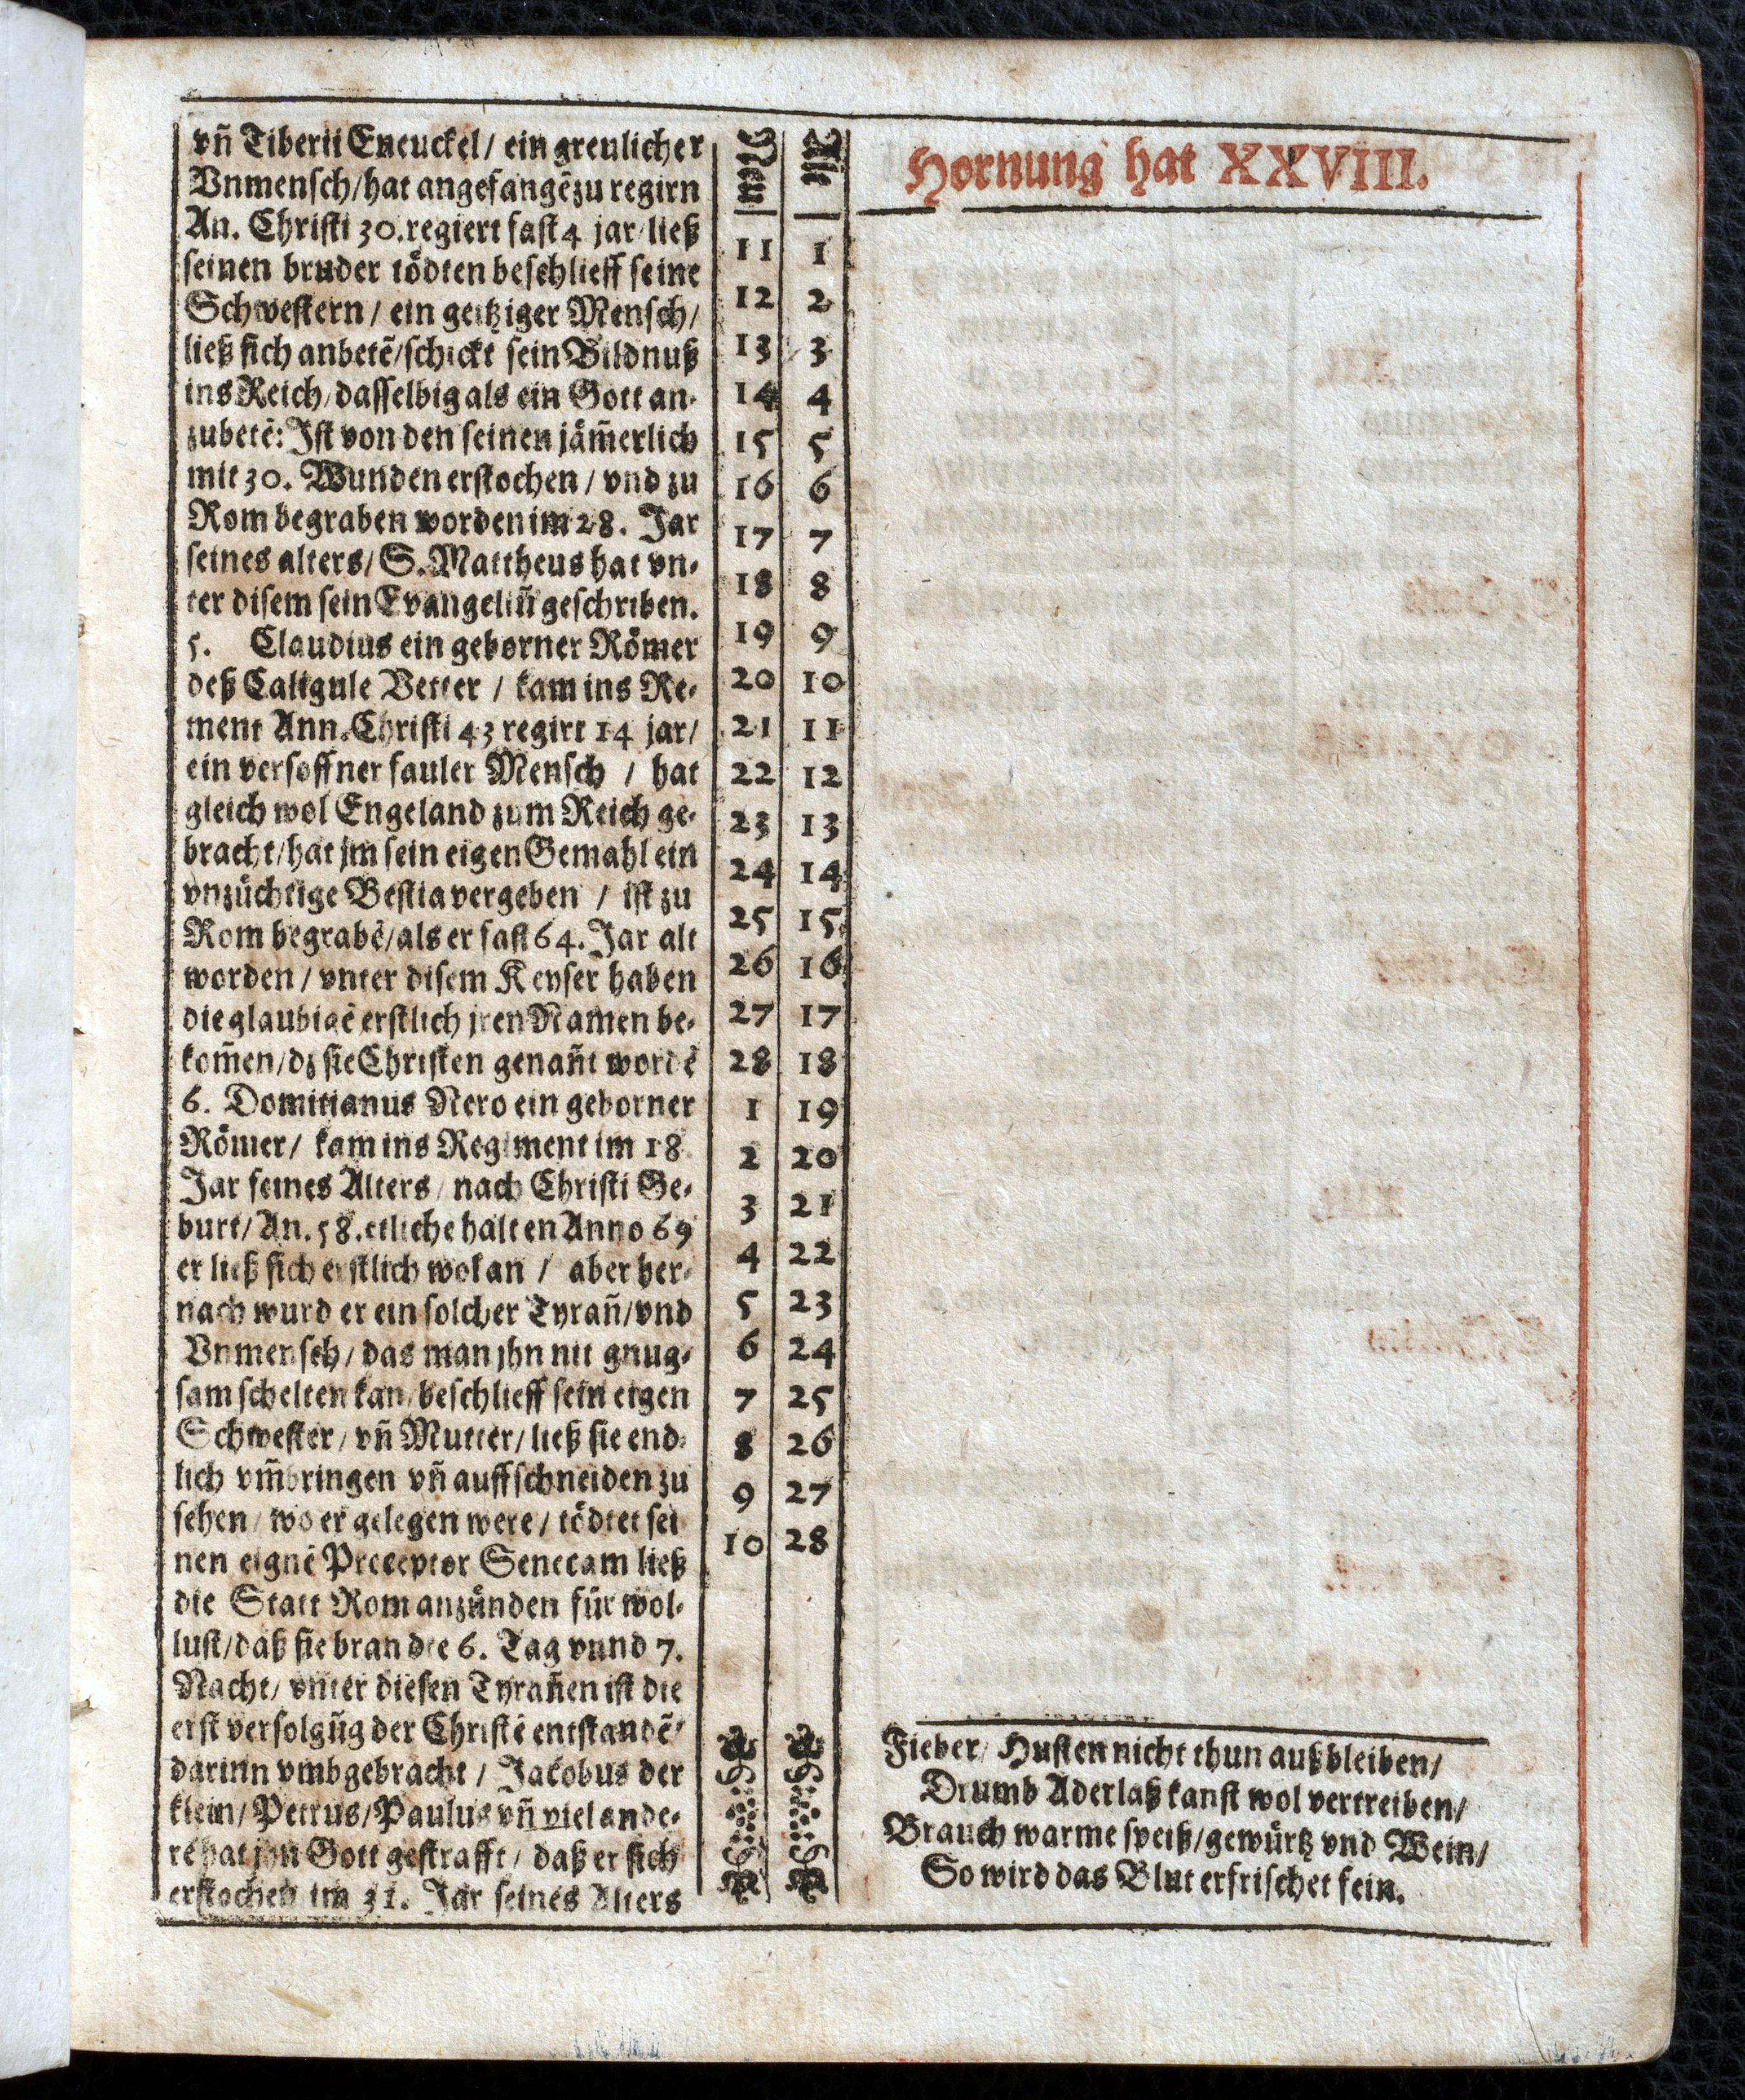 vñ Tiberii Eneuckel / ein greulicher
Vnmensch/hat angefangẽ zu regirn
An. Christi 30. regiert fast 4 jar/ließ
seinen bruder tödten beschlieff seine
Schwestern / ein geitziger Mensch/
ließ sich anbetẽ/schickt sein Bildnuß
ins Reich/dasselbig als ein Gott an-
zubetẽ: Ist von den seinen jäm̃erlich
mit 30. Wunden erstochen / vnd zu
Rom begraben worden im 28. Jar
seines alters/ S. Mattheus hat vn-
ter disem sein Evangeliũ geschriben.
5. Claudius ein geborner Römer
deß Caligule Vetter / kam ins Re-
ment Ann. Christi 43 regirt 14 jar/
ein versoffner fauler Mensch / hat
gleich wol Engeland zum Reich ge-
bracht/hat jm sein eigen Gemahl ein
vnzüchtige Bestia vergeben / ist zu
Rom begrabẽ/als er fast 64. Jar alt
worden / vnter disem Keyser haben
die glaubigẽ erstlich jren Namen be-
kom̃en/dz sie Christen genañt wordẽ
6. Domitianus Nero ein geborner
Römer/ kam ins Regiment im 18
Jar seines Alters/ nach Christi Ge-
burt/ An. 58. etliche halten Anno 69
er ließ sich erstlich wol an / aber her-
nach wurd er ein solcher Tyrañ/vnd
Vnmensch/ das man jhn nit gnug-
sam schelten kan/beschlieff sein eigen
Schwester/ vñ Mutter/ ließ sie end-
lich vm̃bringen vñ auffschneiden zu
sehen/ wo er gelegen were / tödtet sei
nen eignẽ Preceptor Senecam ließ
die Statt Rom anzünden für wol-
lust/daß sie bran die 6. Tag vnnd 7.
Nacht/ vnter diesen Tyrañen ist die
erst verfolgũg der Christẽ entstandẽ/
darinn vmbgebracht / Jacobus der
klein/ Petrus/Paulus vñ viel ande-
rẽ hat jhn Gott gestrafft/ daß er sich
erstochen im 31. Jar seines Alters
New Alt
11 1
12 2
13 3
14 4
15 5
16 6
17 7
18 8
19 9
20 10
21 11
22 12
23 13
24 14
25 15
26 16
27 17
28 18
1 19
2 20
3 21
4 22
5 23
6 24
7 25
8 26
9 27
10 28
Hornung hat XXVIII.
Fieber/ Husten nicht thun außbleiben/
Drumb Aderlaß kanst wol vertreiben/
Brauch warme speiß/gewürtz vnd Wein/
So wird das Blut erfrischet fein.